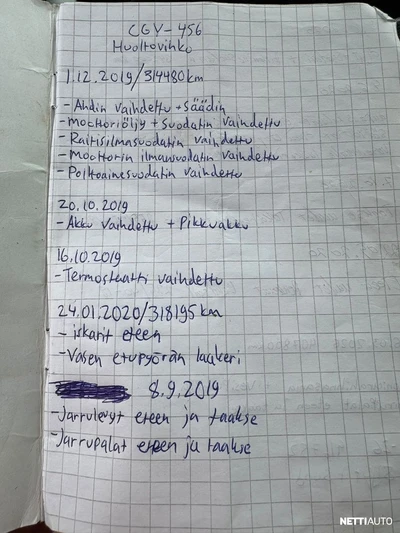 CGY-456
Huoltovihko
1.12.2019/314480km
- Ahdin vaihdettu + säädin
- moottoriöljy + suodatin vaihdettu
- Raitisilmasuodatin vaihdettu
- Moottorin ilmansuodatin vaihdettu
- Polttoainesuodatin vaihdettu
20.10.2019
- Akku vaihdettu + Pikkuakku
16.10.2019
- Termostaatti vaihdettu
24.01.2020/318195km
- iskarit eteen
- Vasen etupyörän laakeri
8.9.2019
- Jarrulevyt eteen ja taakse
- Jarrupalat eteen ja taakse
NETTIAUTO